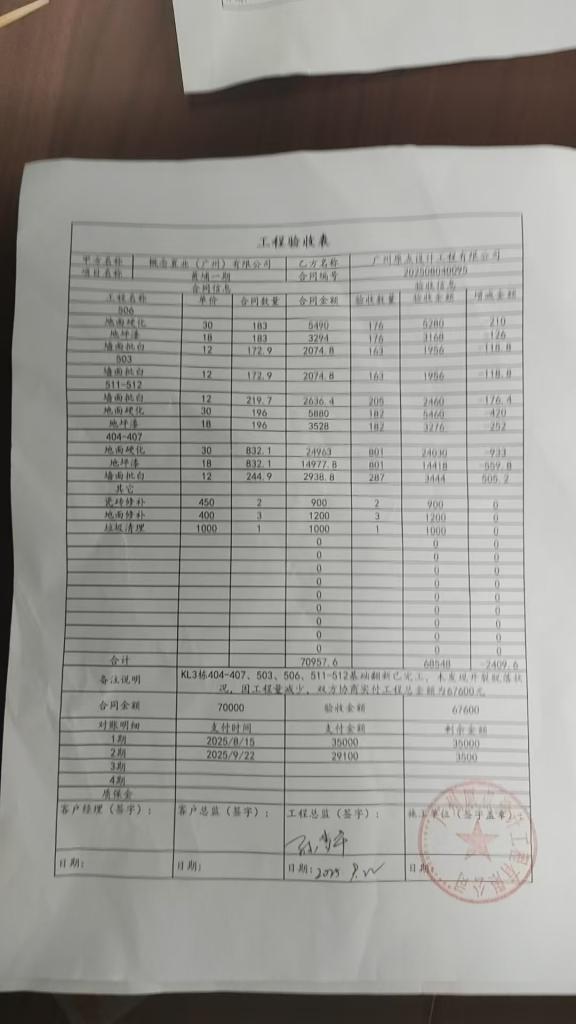 工程验收表
甲方名称 置业（广州）有限公司 乙方名称 广州原点设计工程有限公司
项目名称 黄埔一期 合同编号 202508040095
合同信息 验收信息
工程名称 单价 合同数量 合同金额 验收数量 验收金额 增减金额
506
地面硬化 30 183 5490 176 5280 -210
地坪漆 18 183 3294 176 3168 -126
墙面批白 12 172.9 2074.8 163 1956 -118.8
503
墙面批白 12 172.9 2074.8 163 1956 -118.8
511-512
墙面批白 12 219.7 2636.4 205 2460 -176.4
地面硬化 30 196 5880 182 5460 -420
地坪漆 18 196 3528 182 3276 -252
404-407
地面硬化 30 832.1 24963 801 24030 -933
地坪漆 18 832.1 14977.8 801 14418 -559.8
墙面批白 12 244.9 2938.8 287 3444 505.2
其它
瓷砖修补 450 2 900 2 900 0
地面修补 400 3 1200 3 1200 0
垃圾清理 1000 1 1000 1 1000 0
0 0 0
0 0 0
0 0 0
0 0 0
0 0 0
0 0 0
0 0 0
0 0 0
0 0 0
合计 70957.6 68548 -2409.6
备注说明 KL3栋404-407、503、506、511-512基础翻新已完工，未发现开裂脱落状
况，因工程量减少，双方协商实付工程总金额为67600元
合同金额 70000 验收金额 67600
对账明细 支付时间 支付金额 剩余金额
1期 2025/8/15 35000 35000
2期 2025/9/22 29100 3500
3期
4期
质保金
客户经理（签字）： 客户总监（签字）： 工程总监（签字）： 施工单位（签字盖章）：
日期： 日期： 日期：2025 9.22 日期：